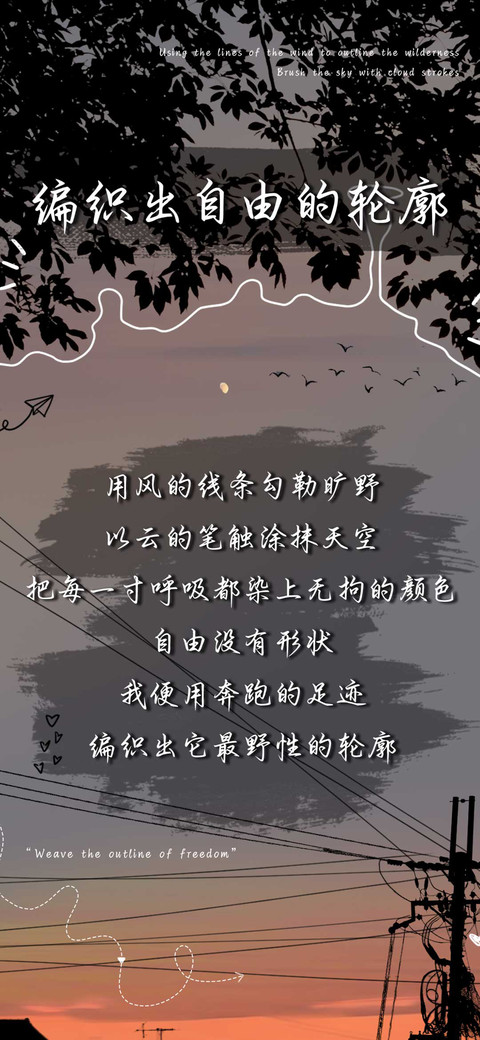 Using the lines of the wind to outline the wilderness
Brush the sky with cloud strokes
编织出自由的轮廓
用风的线条勾勒旷野
以云的笔触涂抹天空
把每一寸呼吸都染上无拘的颜色
自由没有形状
我便用奔跑的足迹
编织出它最野性的轮廓
“Weave the outline of freedom”